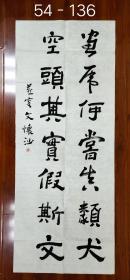 54 - 136
畫虎何嘗真類犬
空頭其實假斯文
燕叟文懷沙